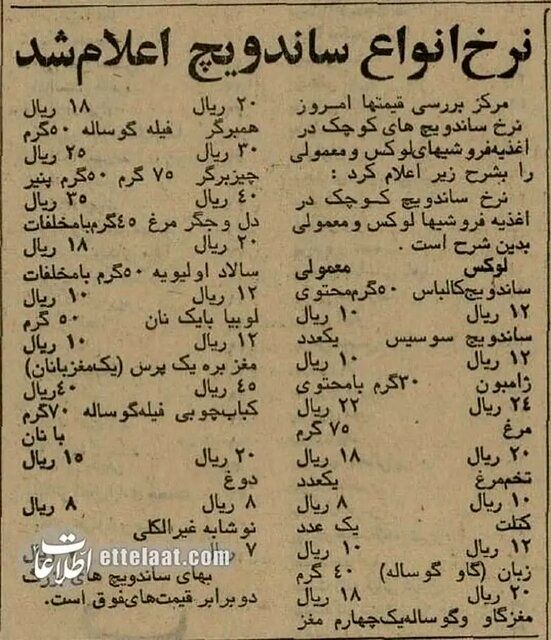 نرخ انواع ساندویچ اعلام شد
مرکز بررسی قیمتها امروز
نرخ ساندویچ های کوچک در
اغذیه فروشیهای لوکس و معمولی
را بشرح زیر اعلام کرد :
نرخ ساندویچ کوچک در
اغذیه فروشیها لوکس و معمولی
بدین شرح است .
لوکس معمولی
ساندویچ کالباس ۵۰ گرم محتوی
۱۲ ریال ۱۰ ریال
ساندویچ سوسیس یکعدد
۱۲ ریال ۱۰ ریال
ژامبون ۳۰ گرم بامحتوی
۲۴ ریال ۲۲ ریال
مرغ ۷۵ گرم
۲۰ ریال ۱۸ ریال
تخم مرغ یکعدد
۱۰ ریال ۸ ریال
کتلت یک عدد
۱۲ ریال ۱۰ ریال
زبان (گاو گوساله) ۴۰ گرم
۲۰ ریال ۱۸ ریال
مغز گاو و گوساله یک چهارم مغز
۲۰ ریال ۱۸ ریال
همبرگر فیله گوساله ۵۰ گرم
۳۰ ریال ۲۵ ریال
چیزبرگر ۷۵ گرم ۵۰ گرم پنیر
۴۰ ریال ۳۵ ریال
دل و جگر مرغ ۴۵ گرم بامخلفات
۲۰ ریال ۱۸ ریال
سالاد اولیویه ۵۰ گرم بامخلفات
۱۲ ریال ۱۰ ریال
لوبیا بایک نان ۵۰ گرم
۱۲ ریال ۱۰ ریال
مغز بره یک پرس (یک مغز بانان)
۴۵ ریال ۴۰ ریال
کباب چوبی فیله گوساله ۷۰ گرم
با نان
۲۰ ریال ۱۵ ریال
دوغ
۸ ریال ۸ ریال
نوشابه غیر الکلی
۷ ریال
بهای ساندویچ های
دو برابر قیمت های فوق است.
اطلاعات ettelaat.com